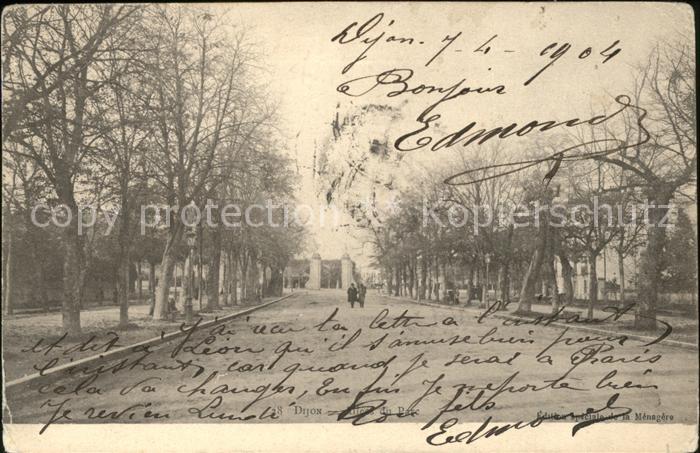 Dijon. 7-4-1904
Bonjour
Edmond
copy protection Kopierschutz
j'ai reçu ta lettre à l'instant
et dit à Léon qu'il s'amuse bien pour
l'instant, car quand je serai à Paris
cela va changer, Enfin je me porte bien
Je revien Lundi fils
28 DIJON — Allées du Parc
Edmond J
Édition Spéciale de la Ménagère